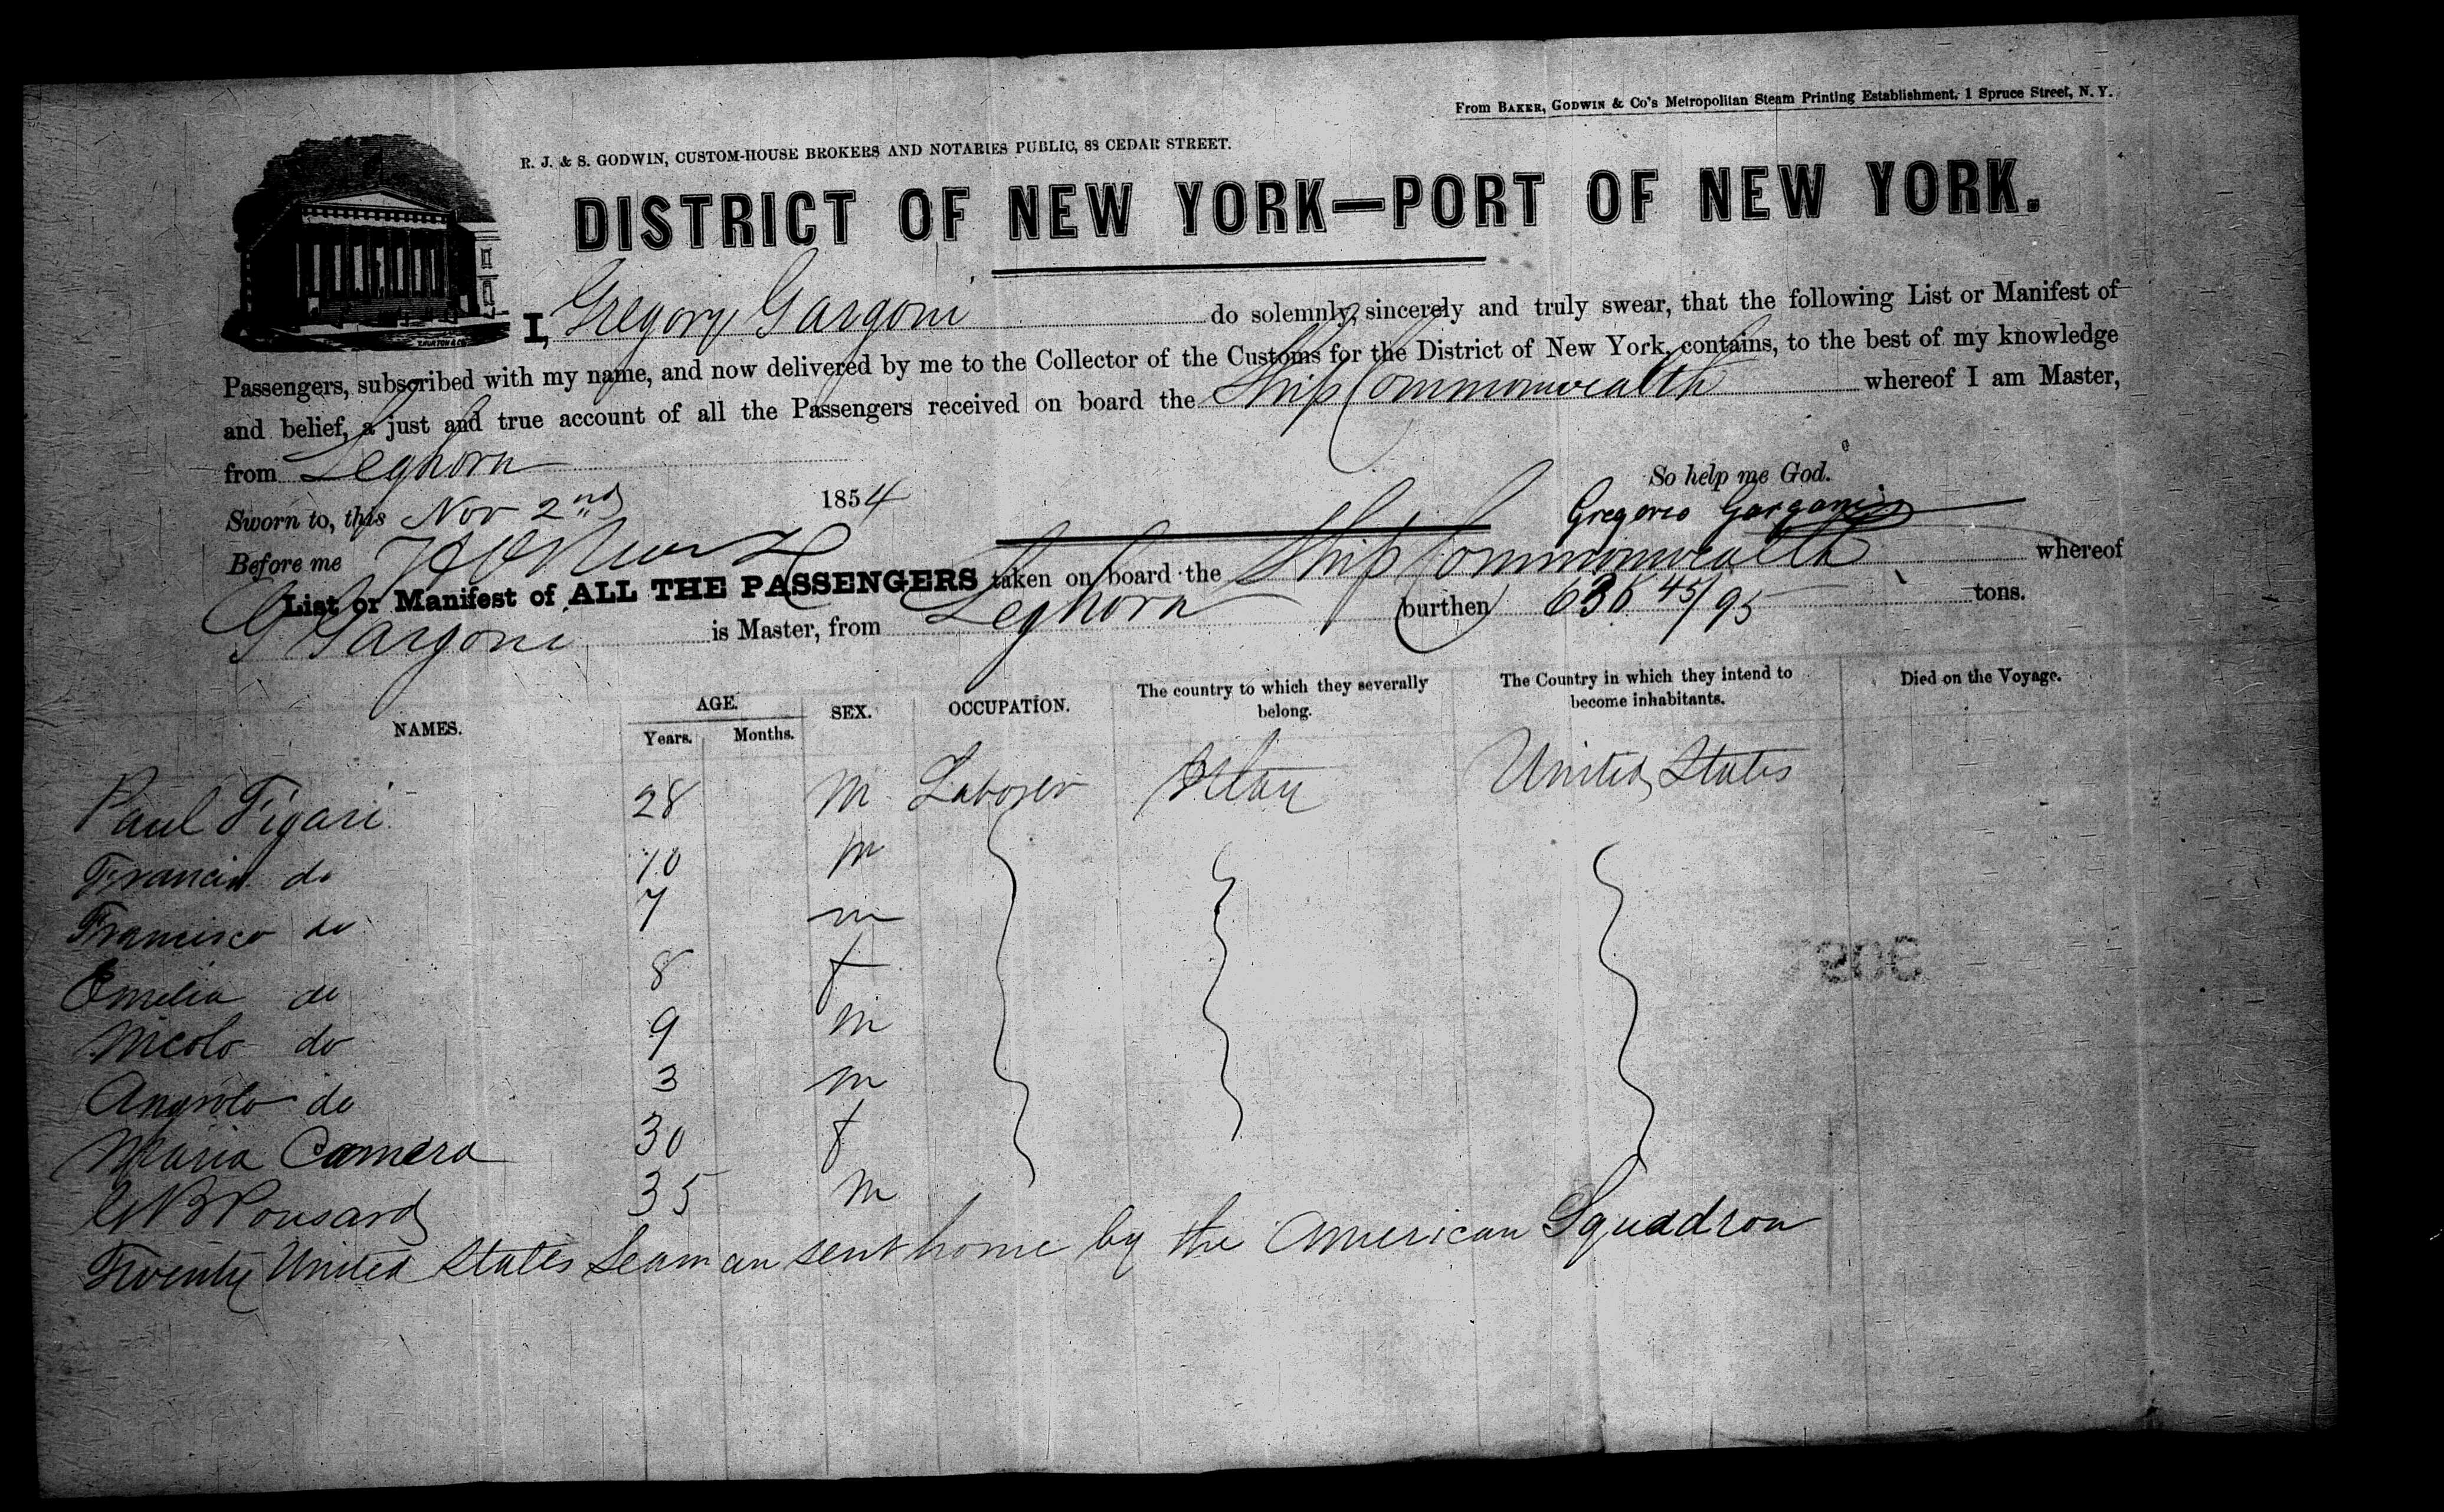 From BAKER, GODWIN & Co's Metropolitan Steam Printing Establishment, 1 Spruce Street, N. Y.
R. J. & S. GODWIN, CUSTOM-HOUSE BROKERS AND NOTARIES PUBLIC, 88 CEDAR STREET.
DISTRICT OF NEW YORK—PORT OF NEW YORK.
I, Gregory Gargoni do solemnly, sincerely and truly swear, that the following List or Manifest of
Passengers, subscribed with my name, and now delivered by me to the Collector of the Customs for the District of New York, contains, to the best of my knowledge
and belief, a just and true account of all the Passengers received on board the Ship Commonwealth whereof I am Master,
from Leghorn
So help me God.
Sworn to, this Nov 2nd 1854
Gregorio Gargani
Before me
List or Manifest of ALL THE PASSENGERS taken on board the Ship Commonwealth whereof
G Gargoni is Master, from Leghorn burthen 636 45/95 tons.
NAMES. AGE. Years. Months. SEX. OCCUPATION. The country to which they severally belong. The Country in which they intend to become inhabitants. Died on the Voyage.
Paul Figari 28 M Laborer Italy United States
Francis do 10 m
Francisco do 7 m
Emilia do 8 f
Nicolo do 9 m
Angiolo do 3 m
Maria Camera 30 f
G B Ponsard 35 m
Twenty United States Seaman sent home by the American Squadron